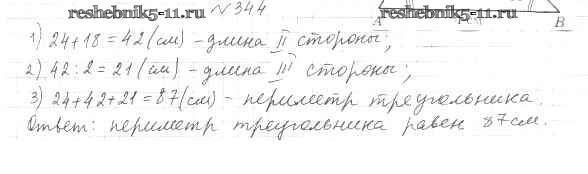 reshebnik5-11.ru № 344 reshebnik5-11.ru
A B
1) 24+18=42(см) - длина II стороны;
2) 42:2=21(см) - длина III стороны;
3) 24+42+21=87(см) - периметр треугольника.
Ответ: периметр треугольника равен 87см.